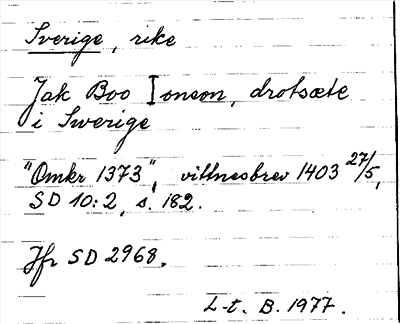 Sverige, rike
Jak Boo Ionson, drotsæte
i Swerige
"Omkr 1373", vittnesbrev 1403 27/5,
SD 10:2, s. 182.
Jfr SD 2968.
L-t. B. 1977.